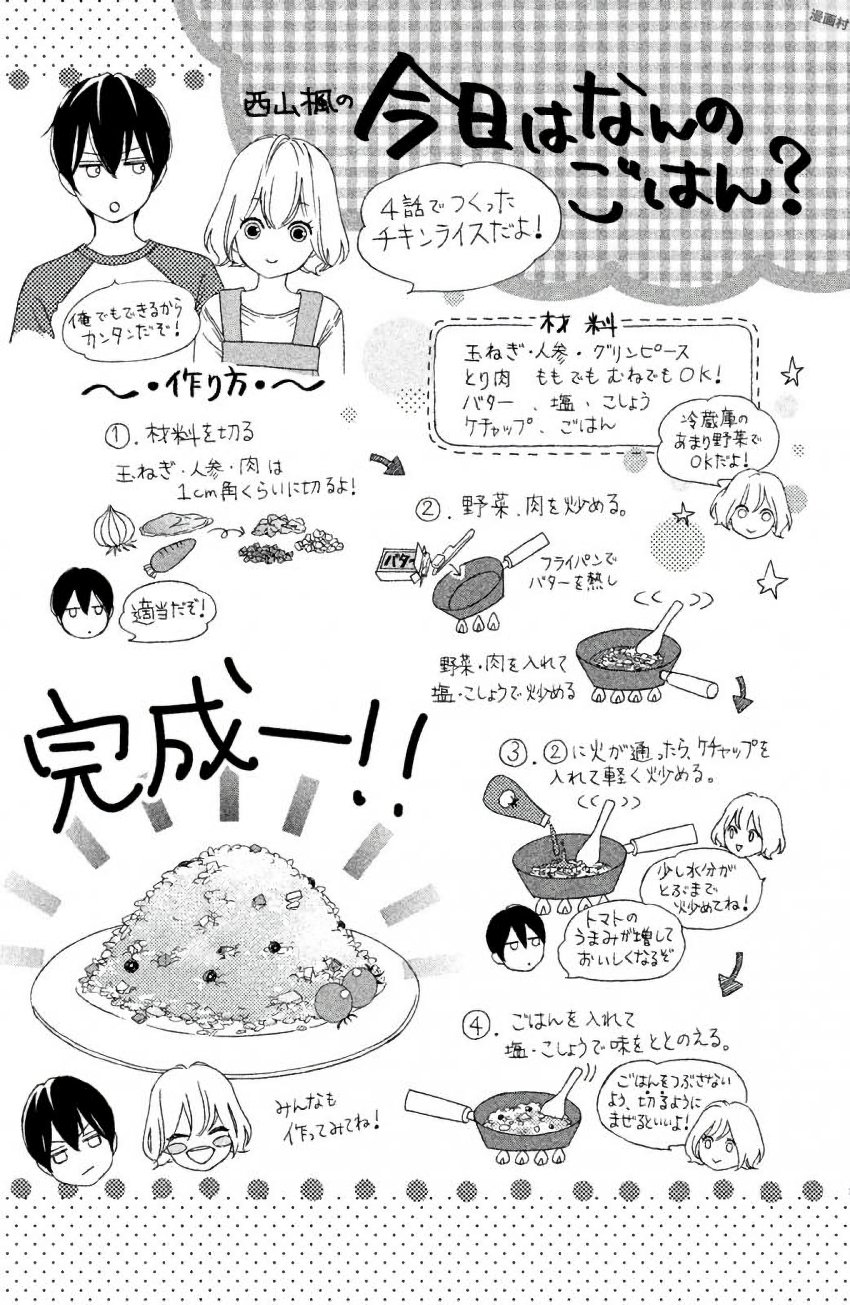 漫画村
西山楓の
今日はなんの
ごはん?
4話でつくった
チキンライスだよ!
俺でもできるから
カンタンだぞ!
材料
玉ねぎ・人参・グリンピース
とり肉 ももでも むねでも OK!
バター、塩、こしょう
ケチャップ、ごはん
冷蔵庫の
あまり野菜で
OKだよ!
〜・作り方・〜
①.材料を切る
玉ねぎ・人参・肉は
1cm角くらいに切るよ!
適当だぞ!
②.野菜、肉を炒める。
バター
フライパンで
バターを熱し
野菜・肉を入れて
塩・こしょうで炒める
③.②に火が通ったら、ケチャップを
入れて軽く炒める。
少し水分が
とぶまで
炒めてね!
トマトの
うまみが増して
おいしくなるぞ
④.ごはんを入れて
塩・こしょうで味をととのえる。
ごはんをつぶさない
よう、切るように
まぜるといいよ!
完成ー!!
みんなも
作ってみてね!